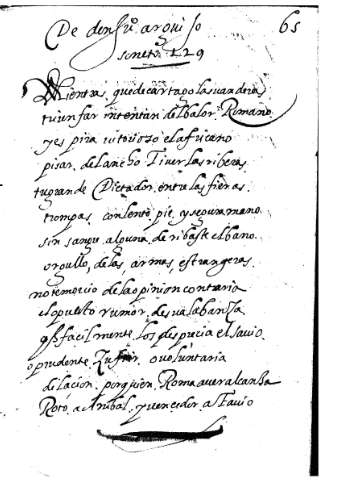 De don Ju.º arguiso
65
soneto 129
Mientras que de cartago las vanderas
triunfar intentan del balor Romano
y espira vitorioso el africano
pisar del ancho Tiver las riberas
tu grande Dictador entre las fieras
trompas con lento pie, y segura mano
sin sangre alguna de ribaste el bano
orgullo, de las armas estrangeras
no temorcio de la opinion contraria
el opuesto rumor, des valabança
q̃ facilmente los desprecia el savio
o prudente o voluntaria
delacion, por quien Roma a ver alcansa
Roto, a anibal, y vencedor a Favio